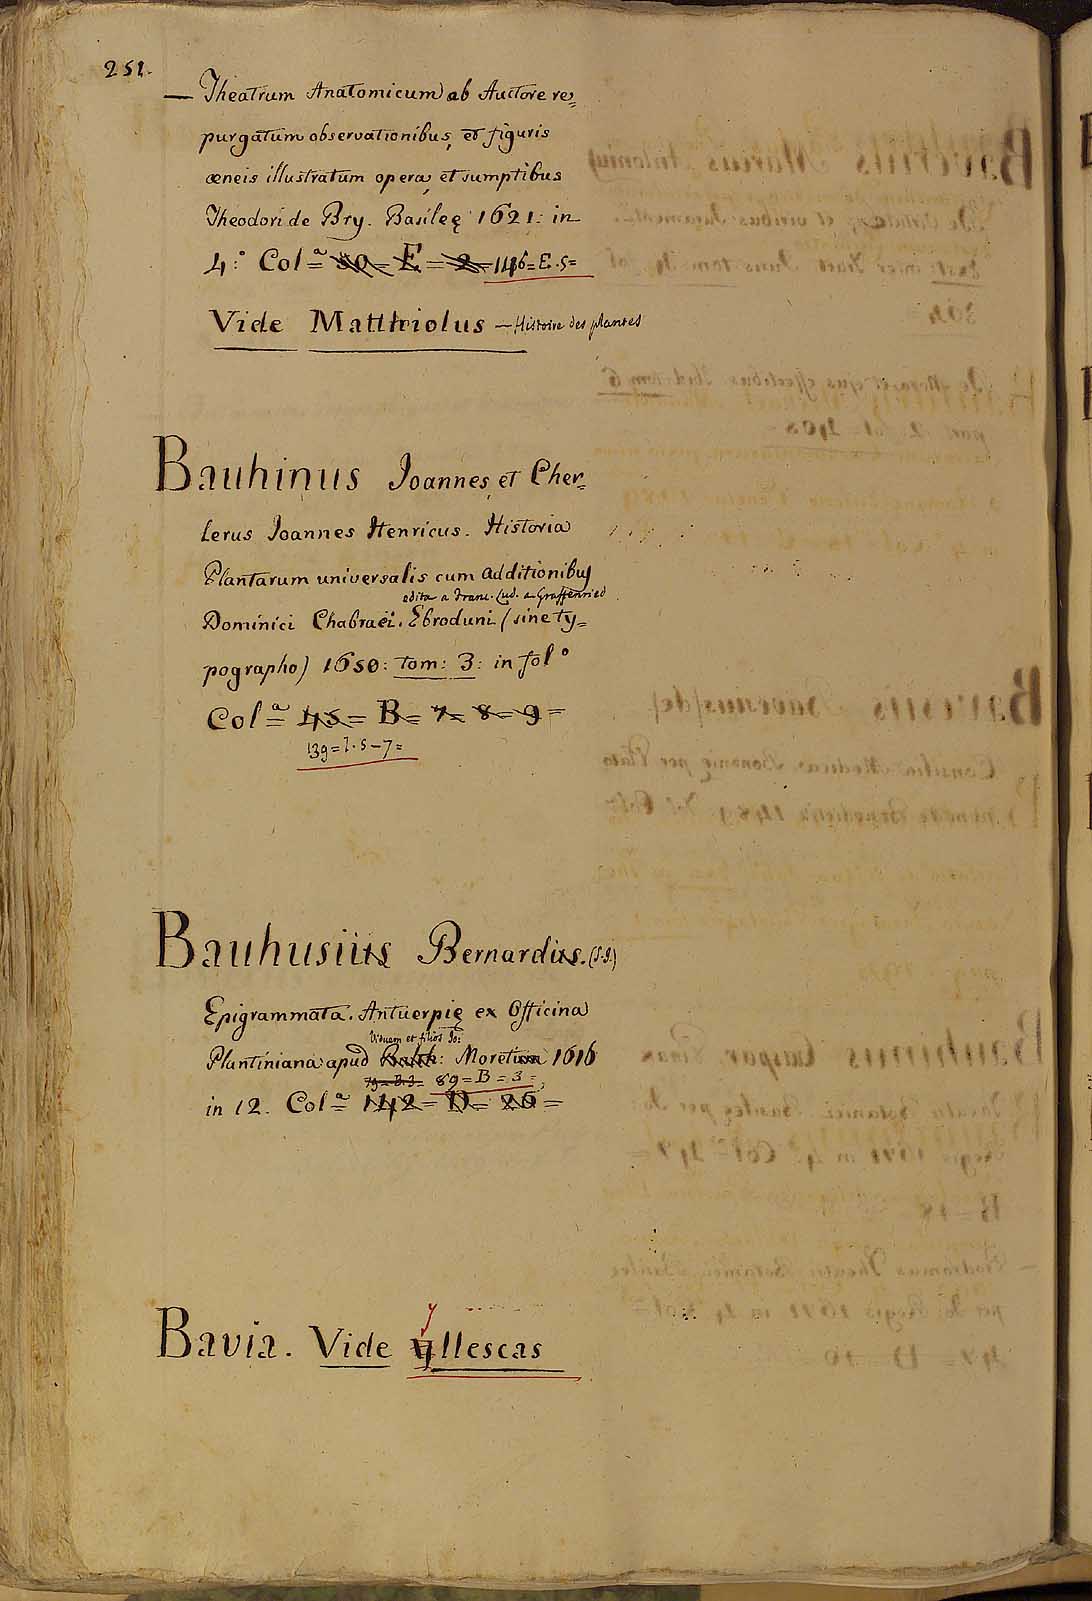 251.
— Theatrum Anatomicum ab Auctore re=
purgatum observationibus, et figuris
æneis illustratum opera, et sumptibus
Theodori de Bry. Basileę 1621: in
4.° Col.ª 50 = E = 2 = 146 = E. 5 =
Vide Matthiolus — Histoire des plantes
Bauhinus Ioannes, et Cher=
lerus Ioannes Henricus. Historia
Plantarum universalis cum additionibus
edita a Franc. Lud. a Graffenried
Dominici Chabraei. Ebroduni (sine ty=
pographo) 1650: tom: 3: in fol°
Col.ª 45 = B = 7 = 8 = 9 =
139 = I. 5 - 7 =
Bauhusius Bernardus. (S.J.)
Epigrammata. Antuerpię ex Officina
Viduam et filios Io:
Plantiniana apud Balth: Moretum 1616
79 = B. 3 = 89 = B = 3 =
in 12. Col.ª 142 = D = 26 =
Bavia. Vide Yllescas